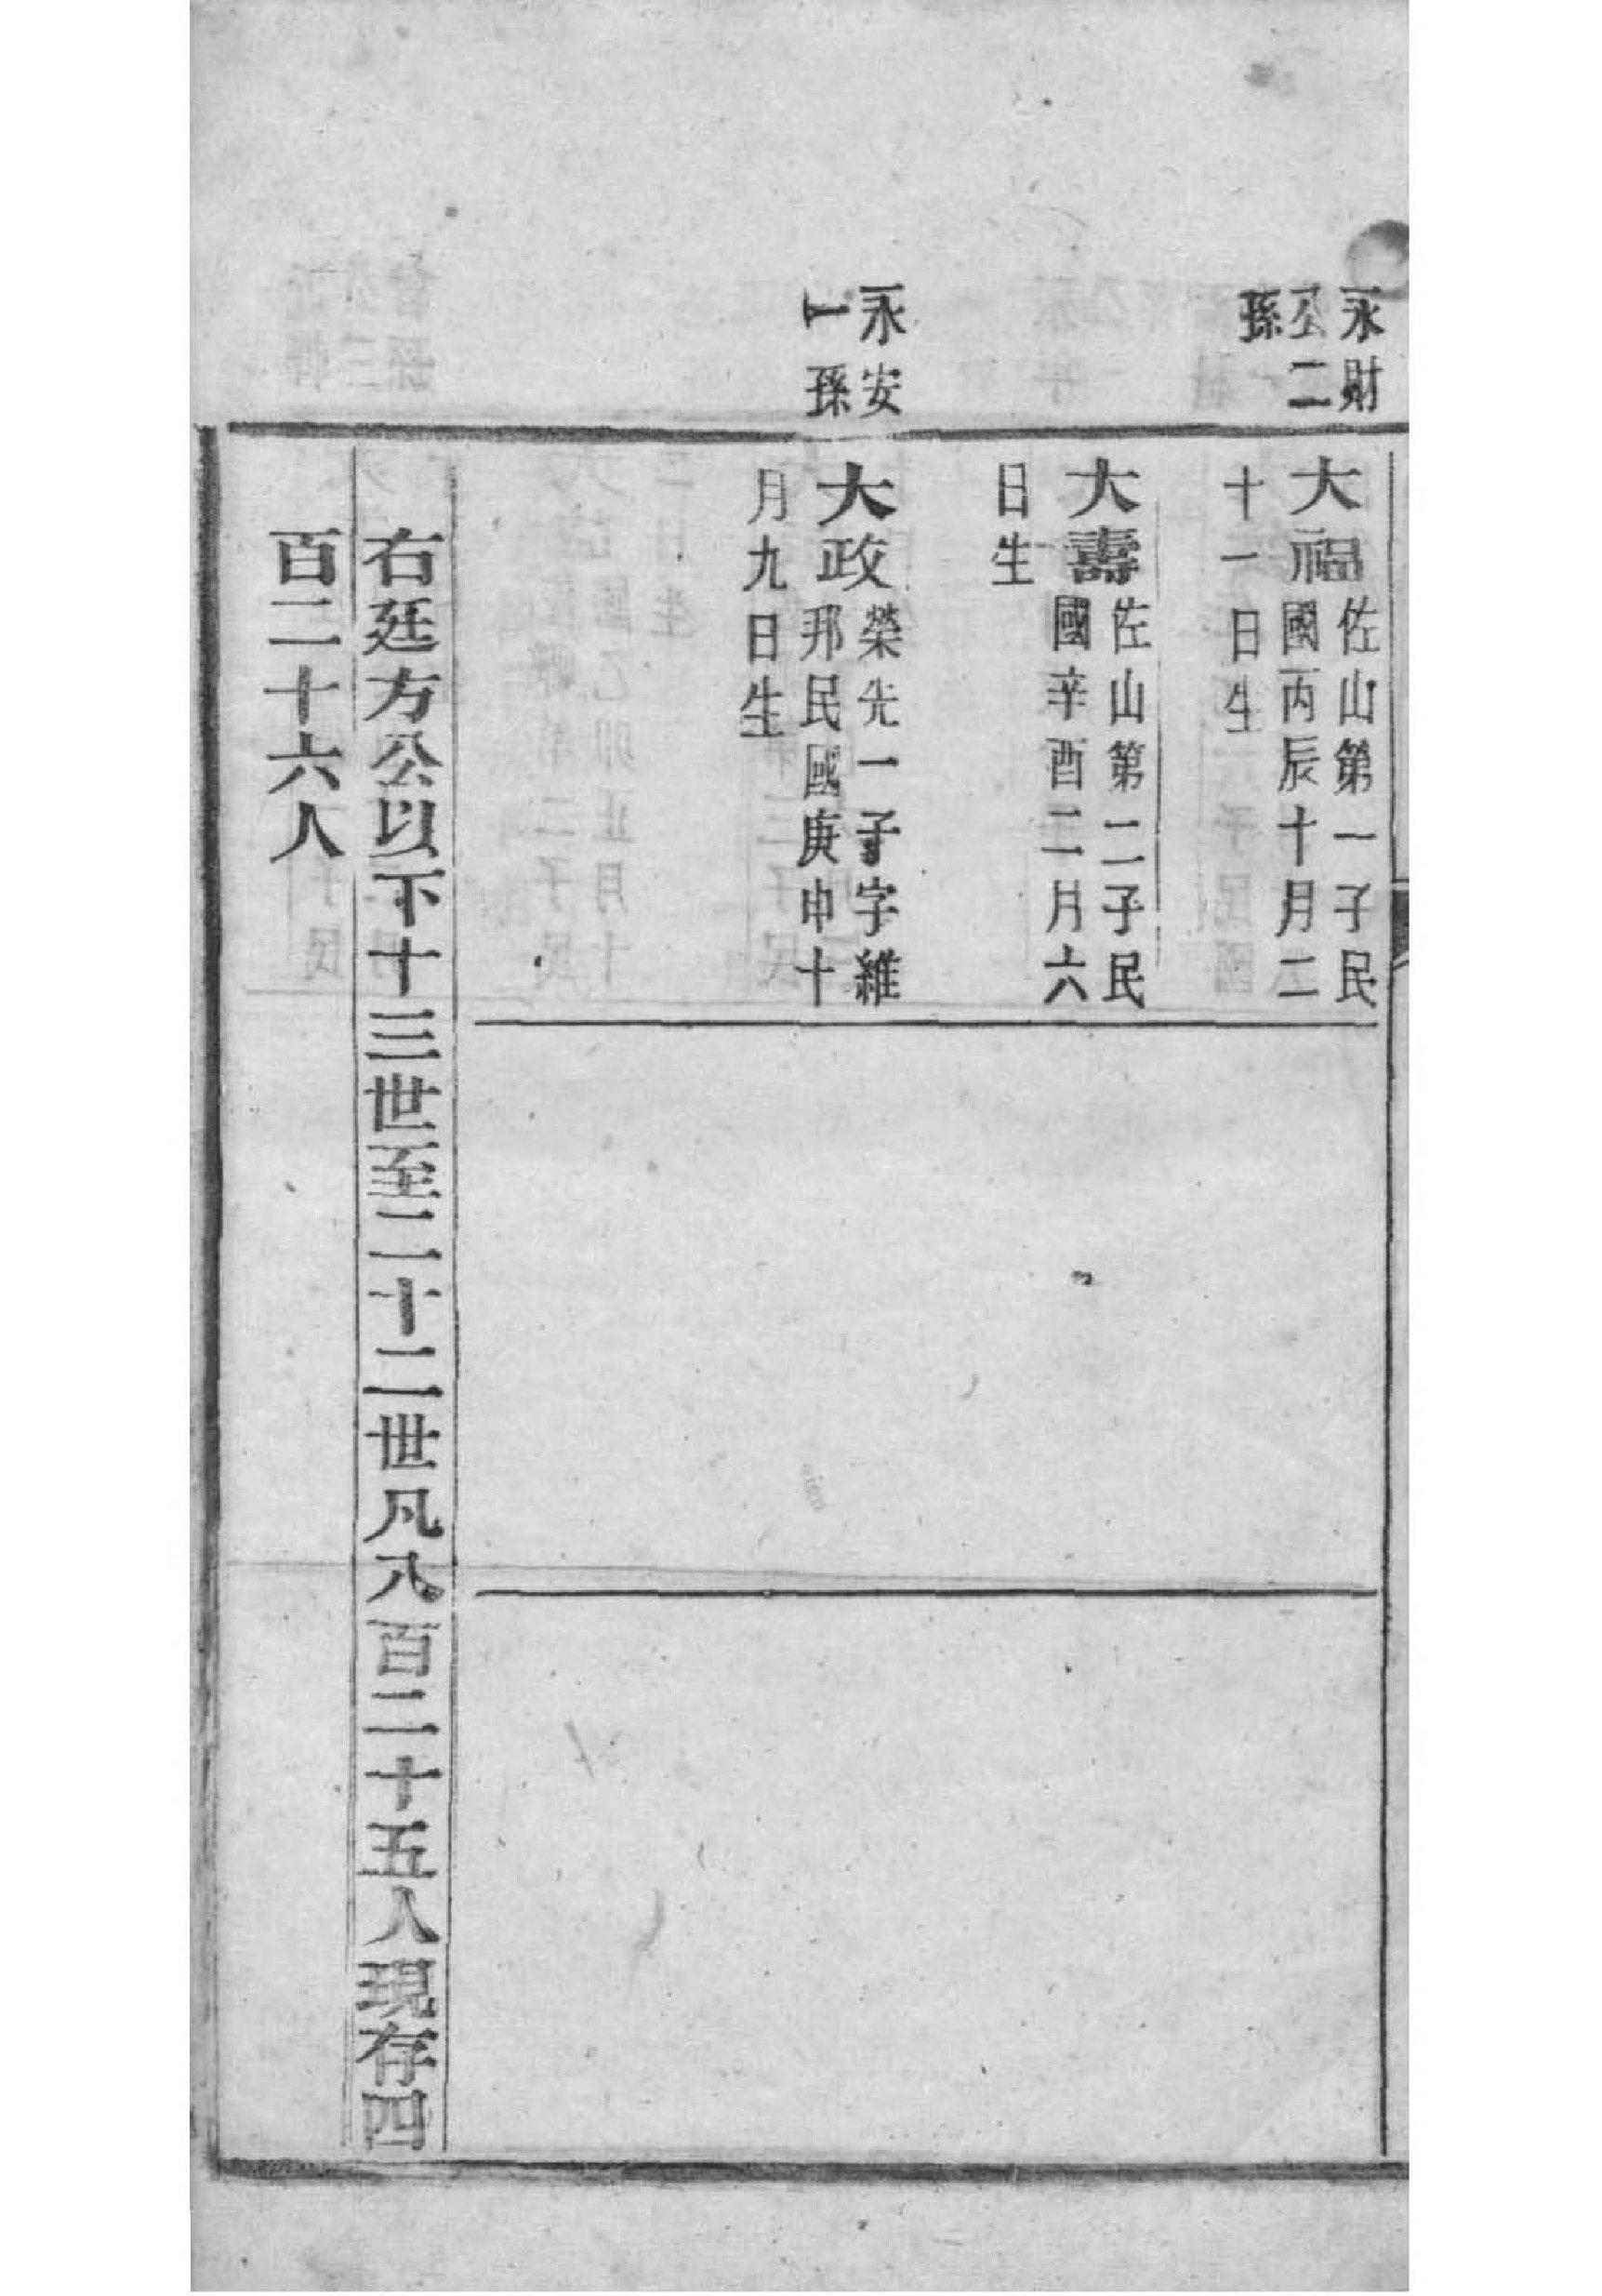 永財
公二
孫
大福
佐山第一子民
國丙辰十月二
十一日生
大壽
佐山第二子民
國辛酉二月六
日生
永安
一孫
大政
榮先一子字維
邦民國庚申十
月九日生
右廷方公以下十三世至二十二世凡八百二十五人現存四
百二十六人